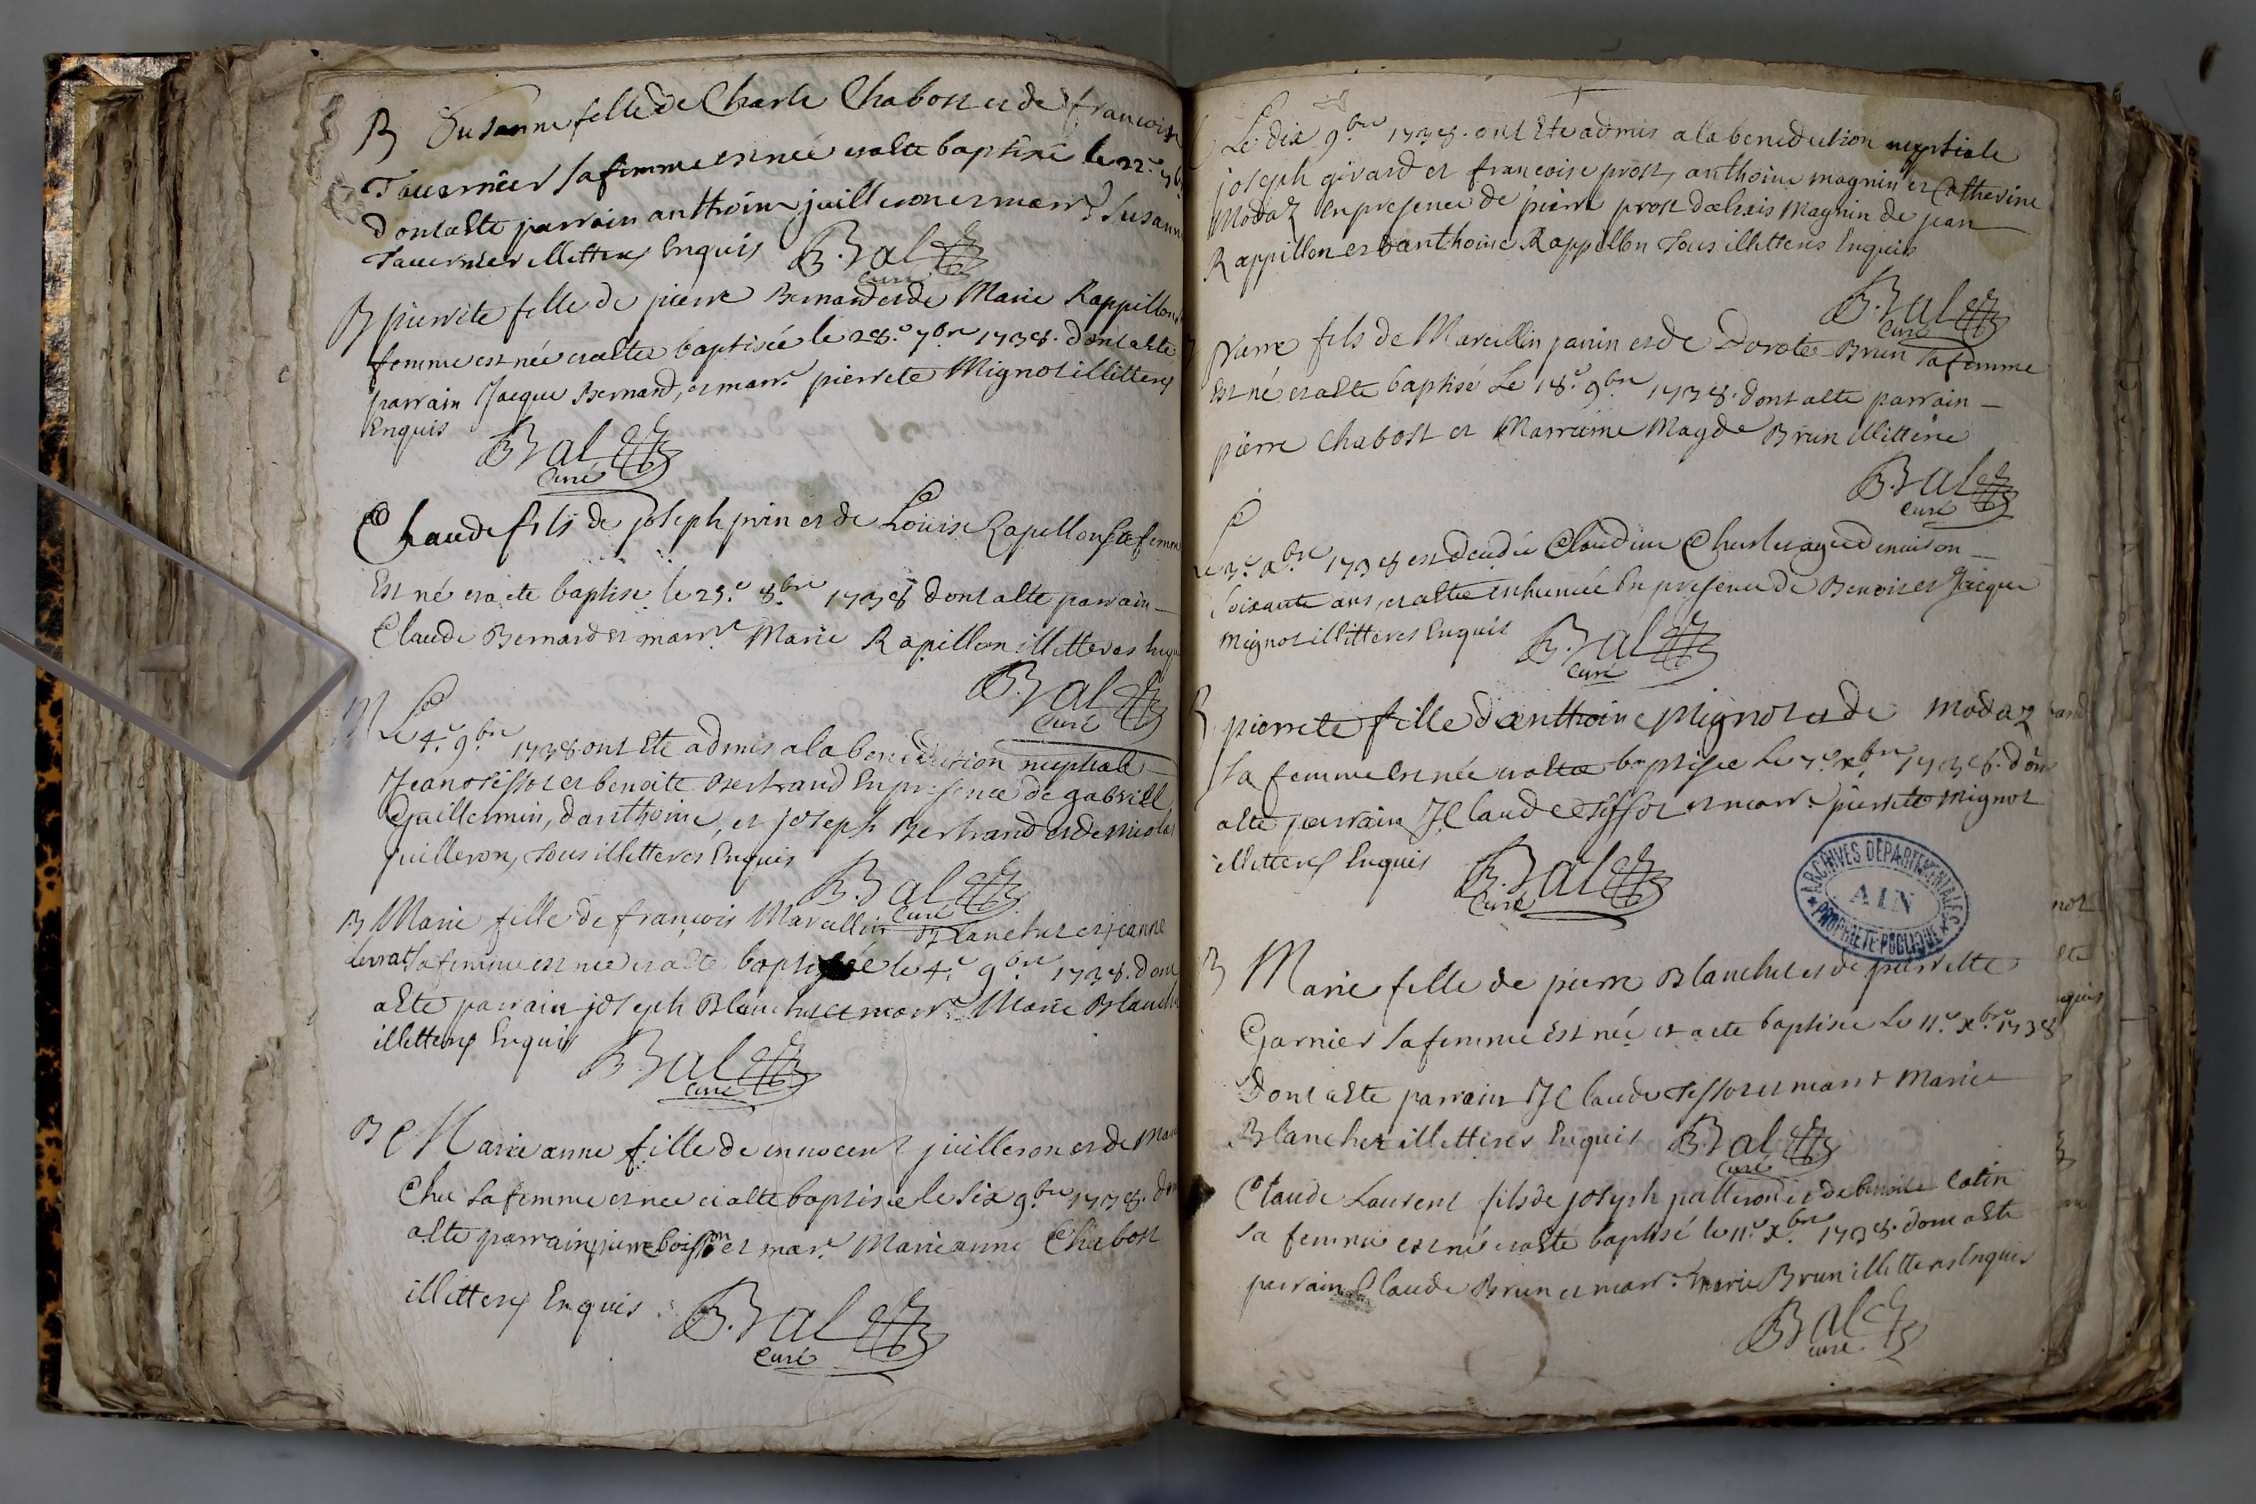 B Susanne fille de Charle Chabost et de francoise
Tavernier sa femme est née et a été baptisée le 22.e 7b
dont a été parrain anthoine juilleron et marr.e Susanne
Tavernier illitteres Enquis B. Bal
Curé
B pierrete fille de pierre Bernard et de Marie Rappillon
femme est née et a été baptisée le 28.e 7bre 1738. dont a été
parrain Jacque Bernard, et marr.e pierrete Mignot illitteres
Enquis B Bal
Curé
Claude fils de joseph et de Loüise Rapillon sa femme
Est né et a ete baptise le 25.e 8bre 1738 dont a été parrain
Claude Bernard et marr.e Marie Rapillon illitteres
B. Bal
Curé
M Le 4.e 9bre 1738 ont Eté admis a la benediction nuptiale
Jean Tissot et benoite Bertrand En presence de gabriel
Guillermin, d'anthoine, et joseph Bertrand et de nicolas
juilleron, tous illitteres Enquis
B. Bal
Curé
B Marie fille de françois Marcellin Blanchet et jeanne
Livrat sa femme est née et a été baptisée le 4.e 9bre 1738. dont
a été parrain joseph Blanchet et marr.e Marie Blanche
illitteres Enquis B. Bal
Curé
B Marie anne fille de innocent juilleron et de Marie
Chu sa femme et née et a été baptisée le six 9bre 1738. dont
a été parrain pierre et mar.e Marie anne Chabost
illitteres Enquis B. Bal
Curé
Le dix 9bre 1738. ont Eté admis a la benediction nuptiale
joseph girard et francoise prost, anthoine magnin et Catherine
Modaz En presence de pierre prost Magnin de jean
Rappillon et d'anthoine Rappillon Tous illitteres Enquis
B. Bal
Curé
Pierre fils de Marcellin janin et de Dorotée Brun sa femme
Est né et a été baptisé Le 18.e 9bre 1738. dont a été parrain
pierre Chabost et Marraine Magde Brun illittére
B. Bal
Curé
Le 3.e xbre 1738 est decedée Claudine Charles agée d'environ
soixante ans, et a été inhumée En presence de Benoit et Jacque
Mignot illitteres Enquis B. Bal
Curé
B pierrete fille d'anthoine Mignot et de Modaz
sa femme est née et a été baptisée Le 7.e xbre 1738. dont
a été parrain Jl Claude Tissot et marr.e pierrete Mignot
illitteres Enquis B. Bal
Curé
ARCHIVES DÉPARTEMENTALES
AIN
PROPRIÉTÉ PUBLIQUE
B Marie fille de pierre Blanchet et de pierrette
Garnier sa femme Est née et a ete baptisée Le 11.e xbre 1738
Dont a Eté parrain Jl Claude Tissot et marr.e Marie
Blanchet illitteres Enquis B. Bal
Curé
Claude Laurent fils de joseph juilleron et de benoite Catin
sa femme est né et a été baptisé le 11.e xbre 1738. dont a Eté
parrain Claude Brun et marr.e marie Brun illitteres Enquis
B Bal
curé